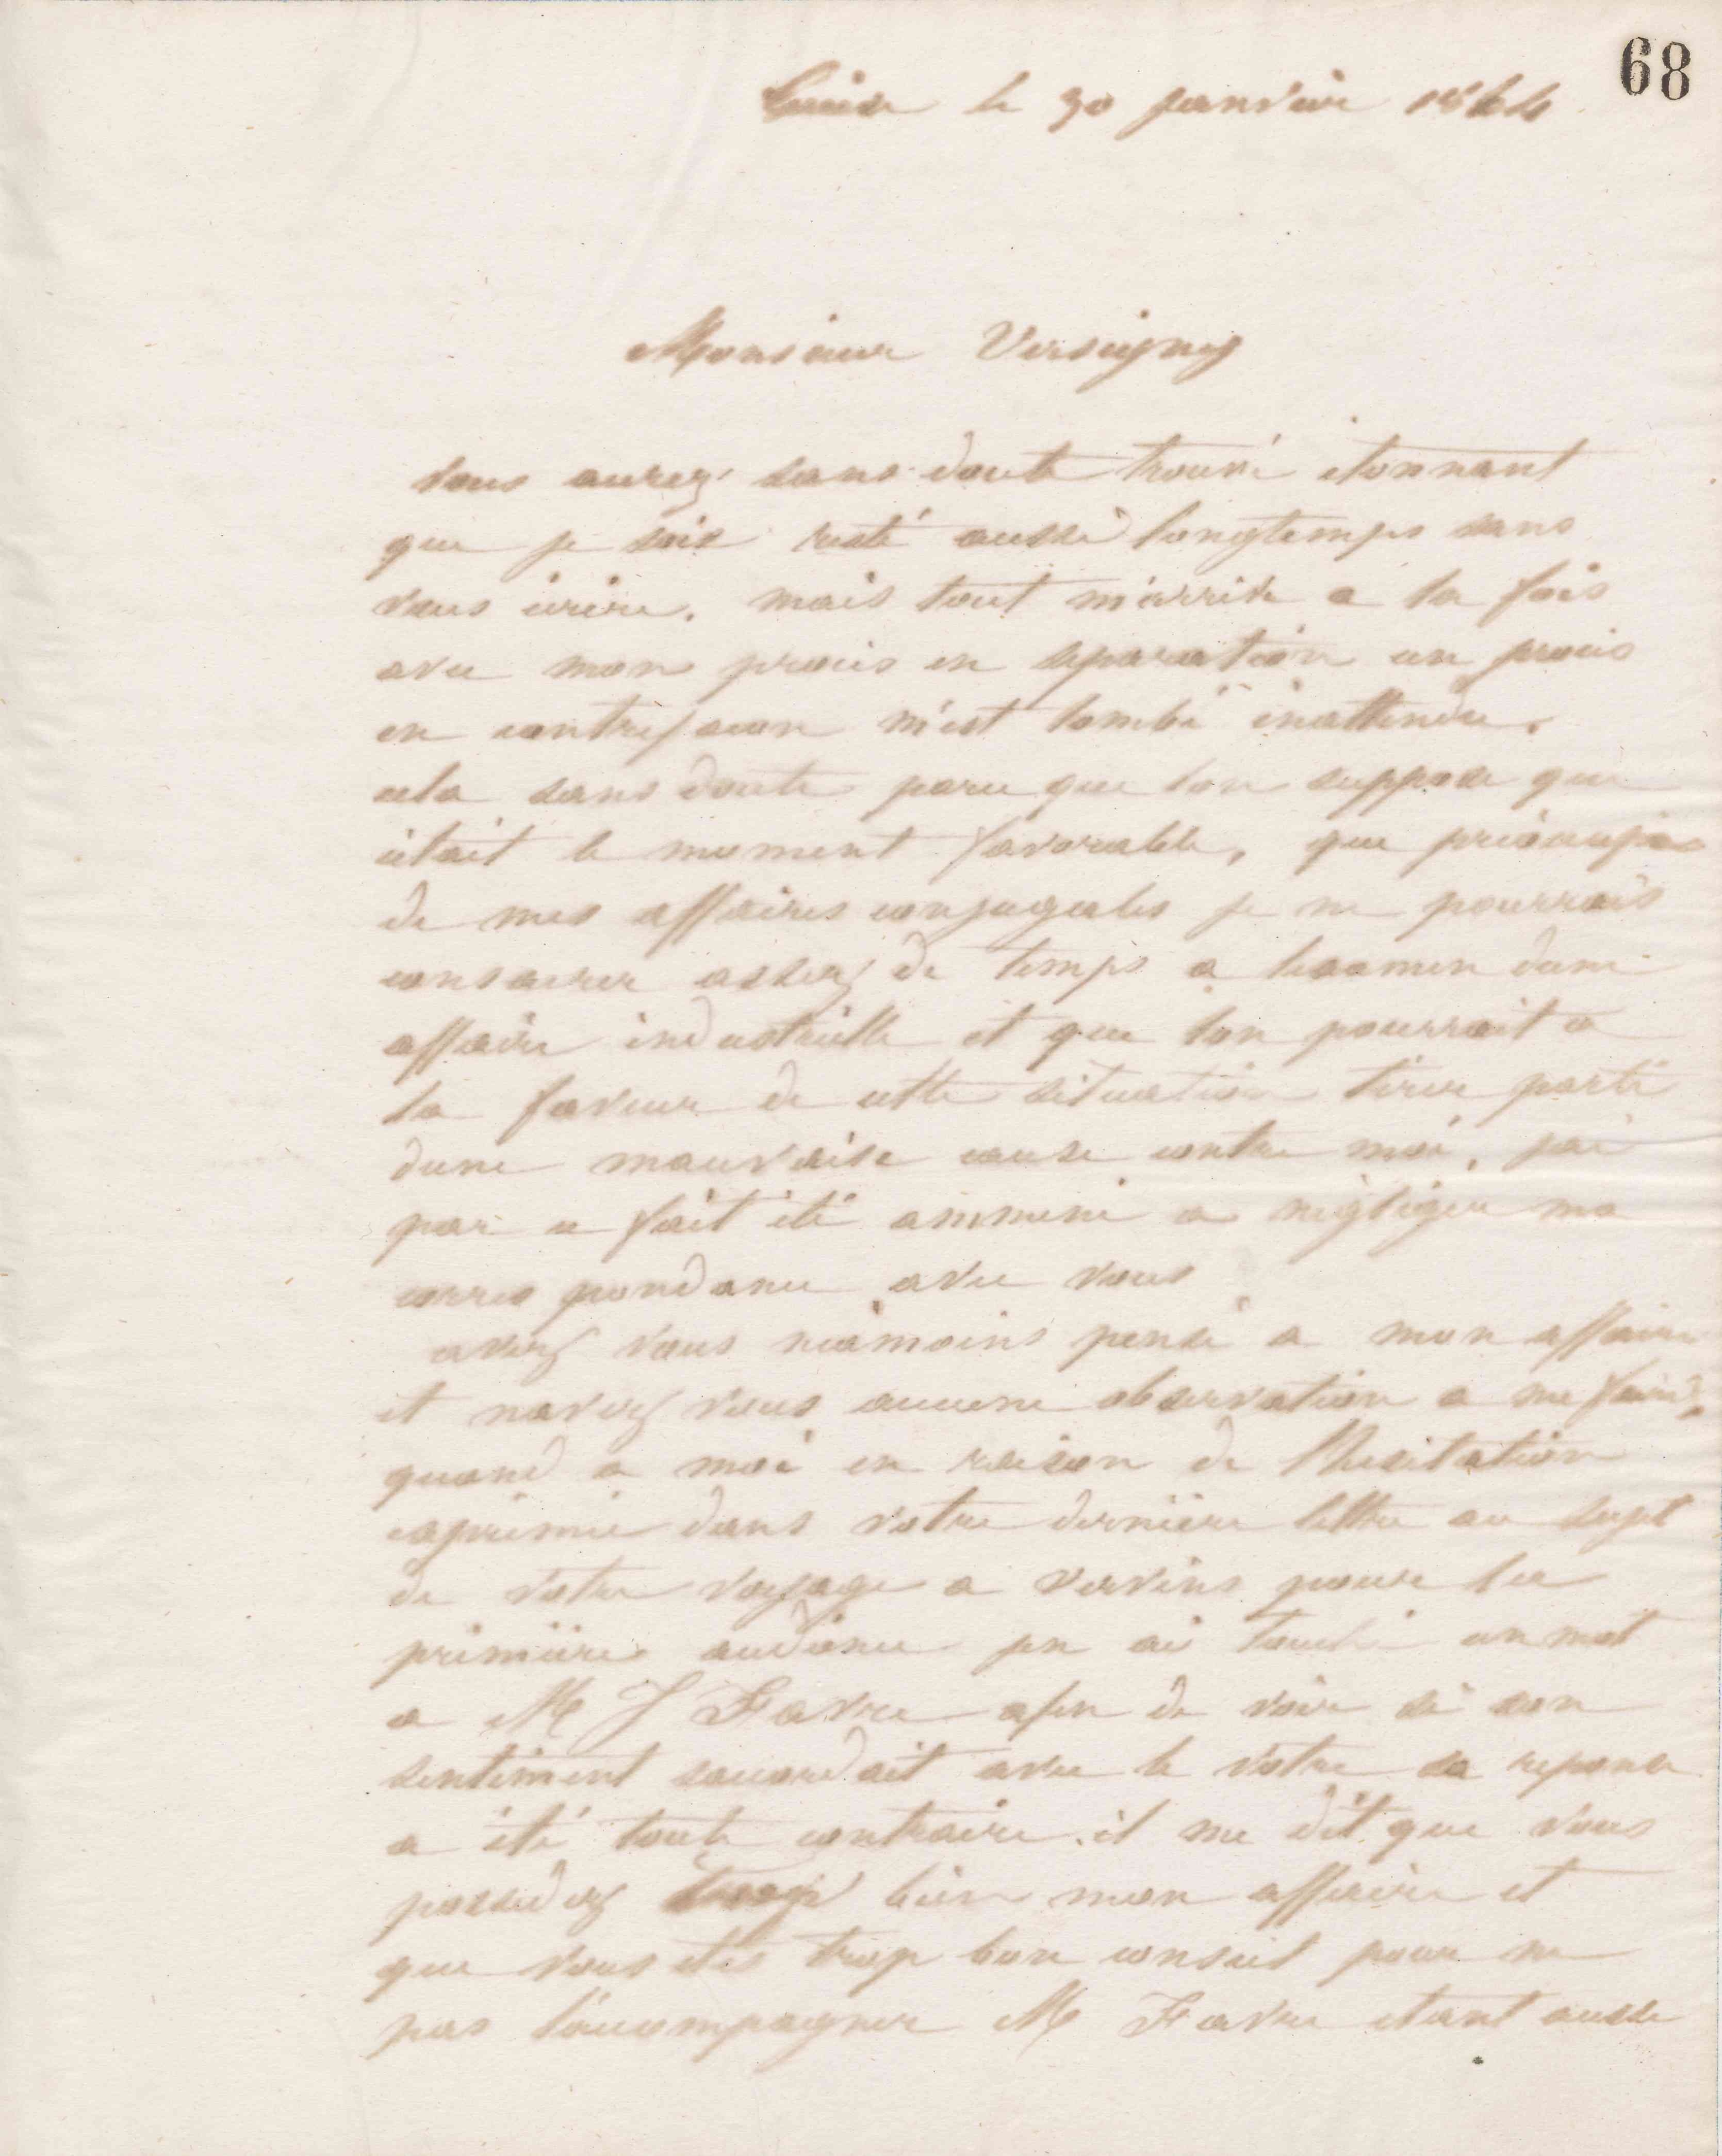 68
Guise le 30 janvier 1864
Monsieur Versigny
Vous aurez sans doute trouvé étonnant
que je sois resté aussi longtemps sans
vous écrire. mais tout m'arrive a la fois
avec mon procès en séparation un procès
en contrefacon m'est tombé inattendu.
cela sans doute parce que lon suppose que
cétait le moment favorable, que préoccupé
de mes affaires conjugales je ne pourrais
consacrer assez de temps a lexamen dune
affaire industrielle et que lon pourrait a
la faveur de cette situation tirer parti
dune mauvaise cause contre moi, jai
par ce fait été ammené a négliger ma
correspondance avec vous
avez vous néamoins pensé a mon affaire
et navez vous aucune observation a me faire?
quand a moi en raison de lhesitation
exprimée dans votre dernière lettre au sujet
de votre voyage a Vervins pour la
première audience jen ai touché un mot
a M J Favre afin de voir si son
sentiment saccordait avec le votre sa reponse
a été toute contraire. il me dit que vous
possedez trop bien mon affaire et
que vous etes trop bon conseil pour ne
pas l'accompagner M Favre etant aussi